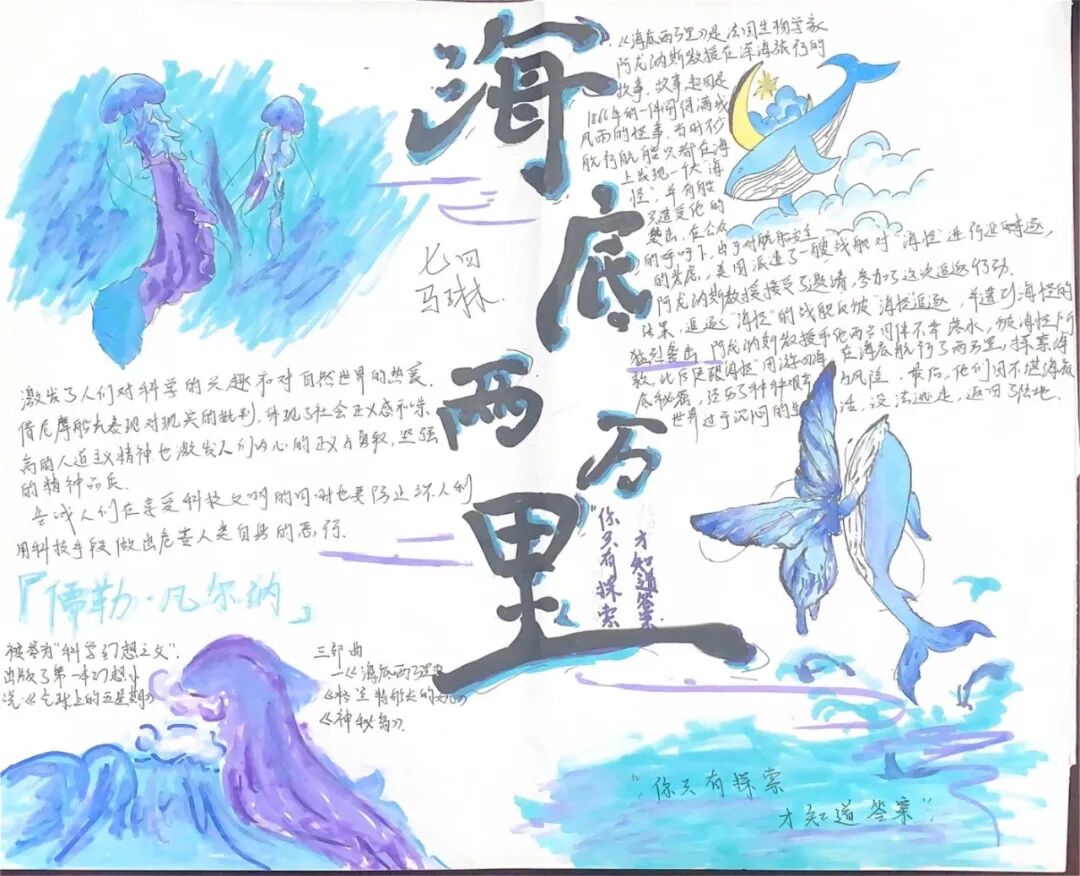 海底两万里
七四
马琳
《海底两万里》是法国生物学家
阿龙纳斯教授在深海旅行的
故事。故事起因是
1866年的一件闹得满城
风雨的怪事，当时不少
航行船只都在海
上发现一大"海
怪"，并有船
只遭受他的
袭击，在公众
的呼吁下，出于对航船安全
的考虑，美国派遣了一艘战舰对"海怪"进行追逐，
阿龙纳斯教授接受了邀请，参加了这次追逐行动。
结果，追逐"海怪"的战舰反被"海怪追逐，并遭到海怪的
猛烈袭击，阿龙纳斯教授和他两个同伴不幸落水，被海怪所
救，此后尼摩 用游四海，在海底航行了两万里，探索海
底秘密，经历了种种艰 与风险，最后，他们因不堪海底
世界过于沉闷的生 活，设法逃走，返回了陆地。
激发了人们对科学的兴趣和对自然世界的热爱。
借尼摩船长表现对现实的批判，体现了社会正义感和崇
高的人道主义精神也激发人们内心的正义与勇敢，坚强
的精神品质。
告诫人们在享受科技文明的同时也要防止坏人利
用科技手段做出危害人类自身的恶行。
"你只有探索
才知道答案
『儒勒·凡尔纳』
被誉为"科学幻想之父"。
出版了第一本幻想小
说《气球上的五星期》
三部曲
—《海底两万里》
《格兰特船长的儿女》
《神秘岛》。
"你只有探索
才知道答案"